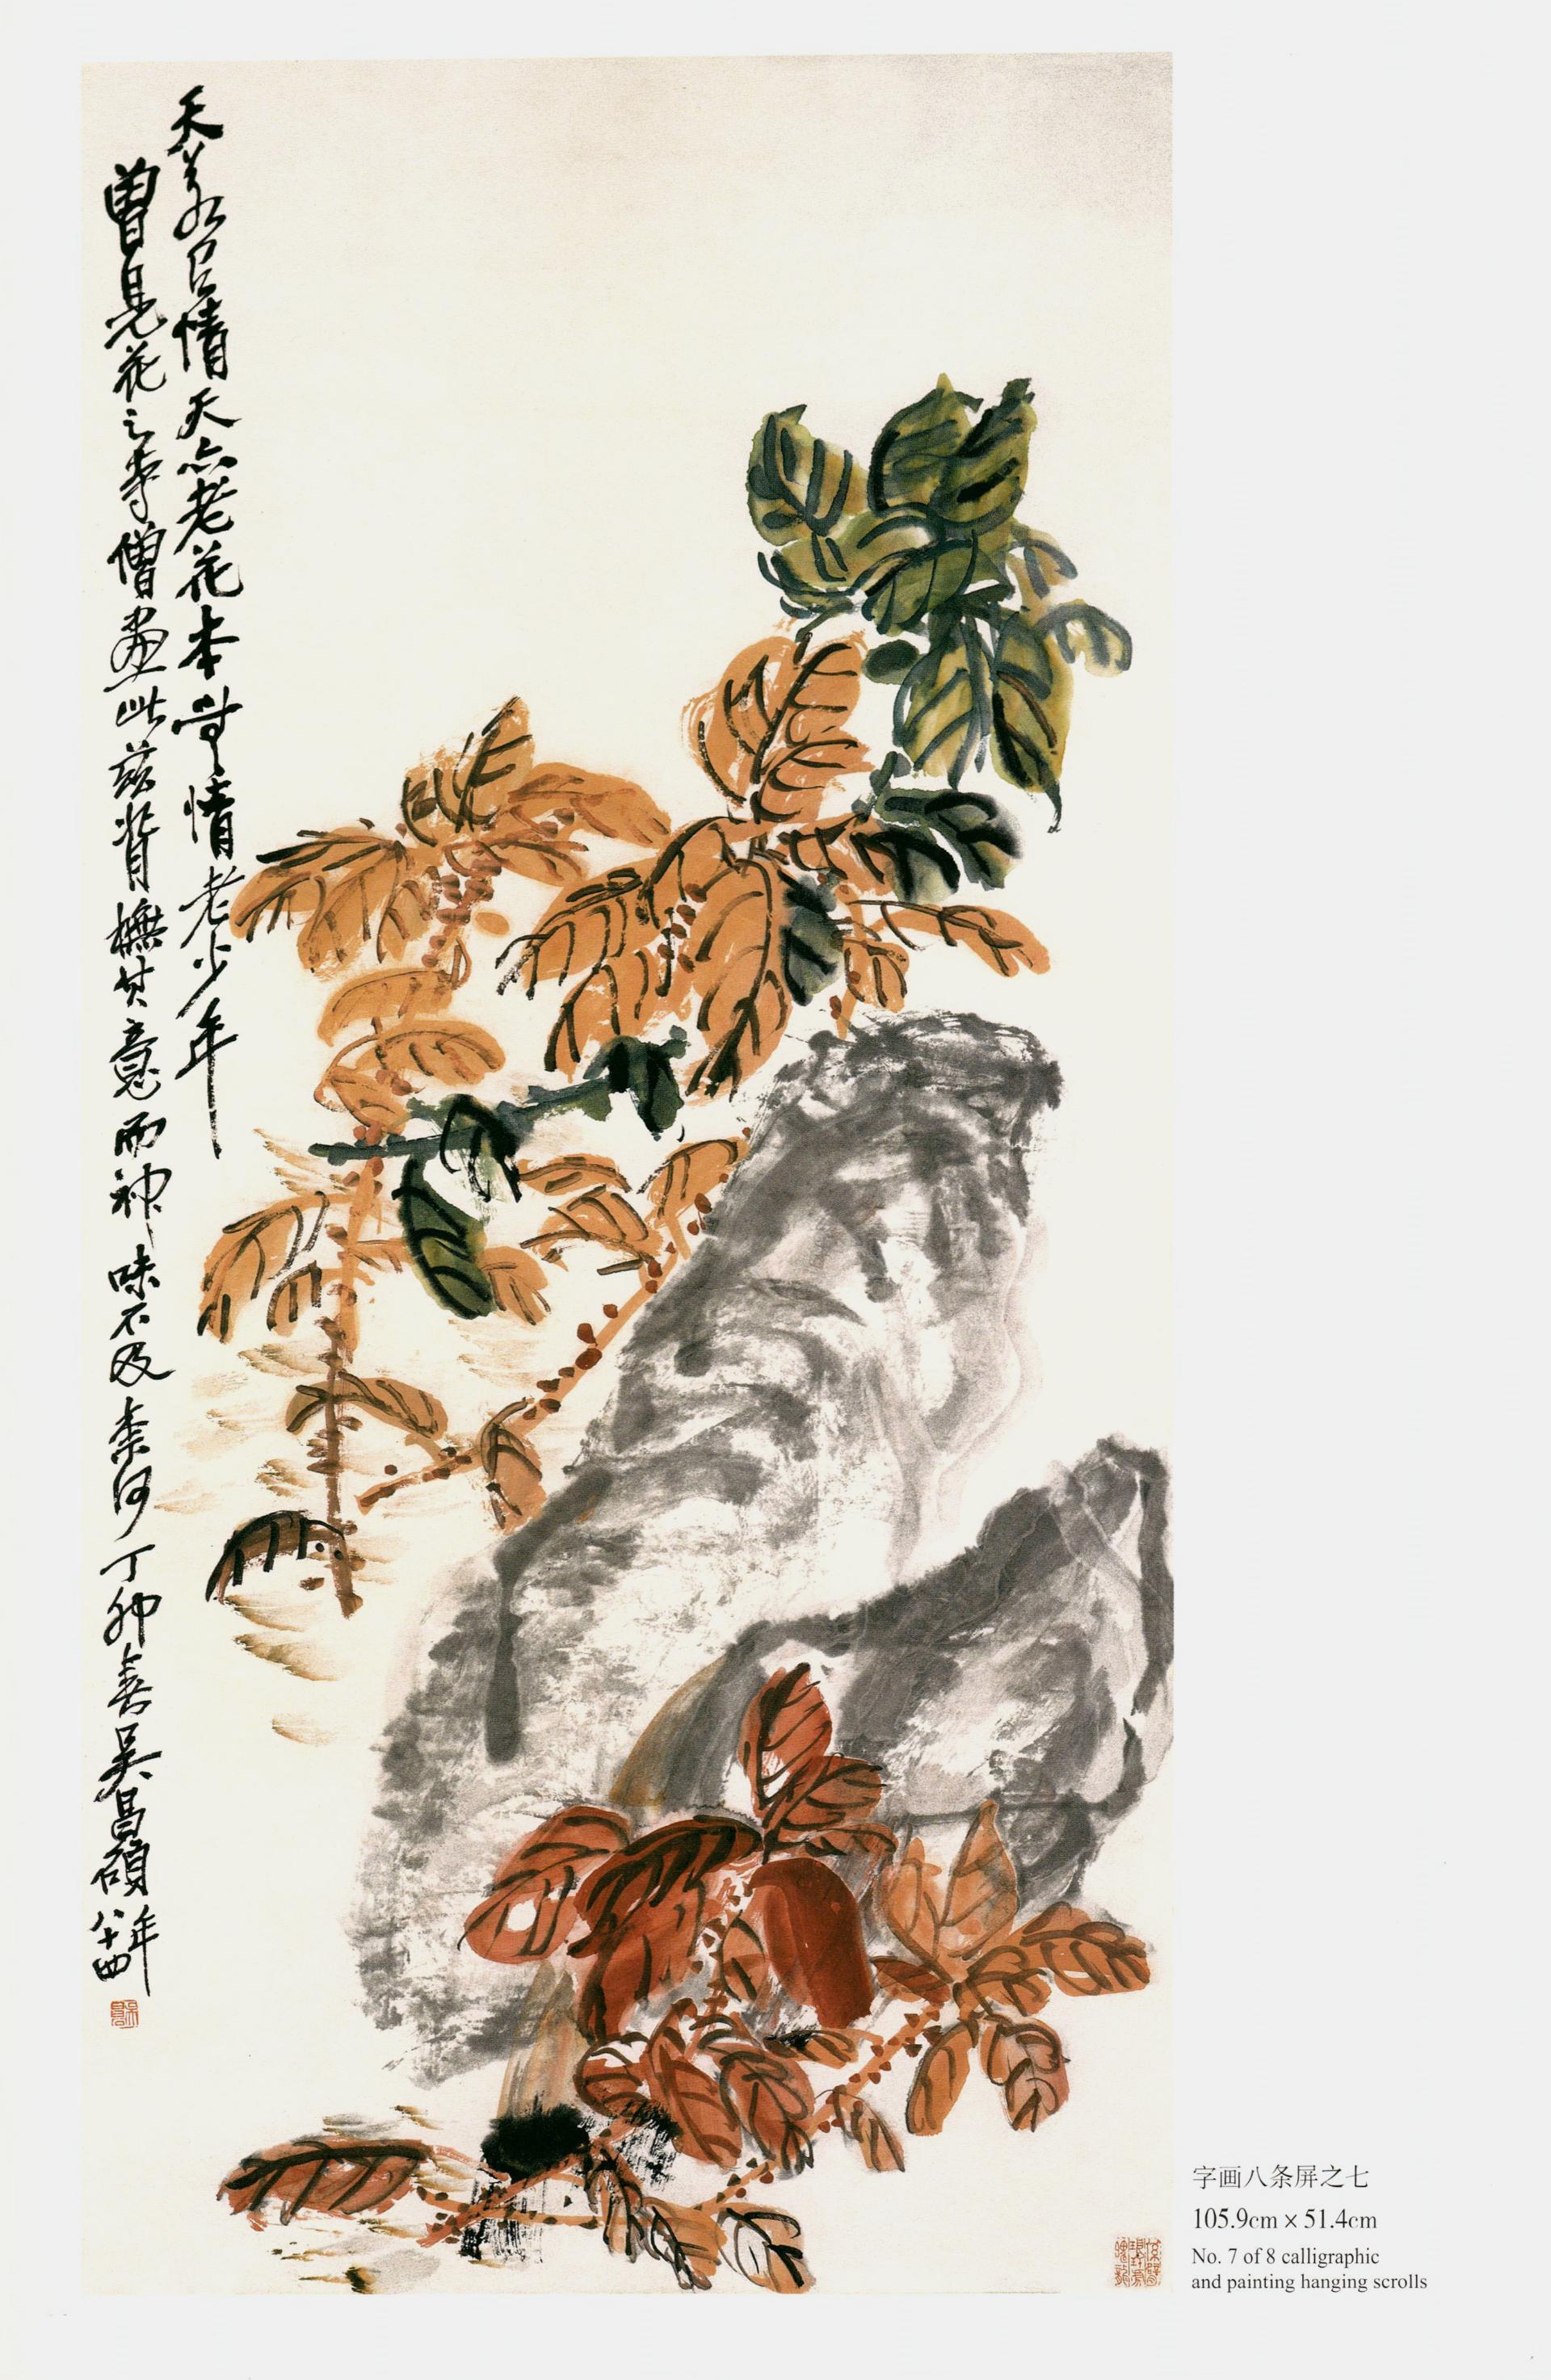 天若有情天亦老花本無情老少年
曾見花之寺僧畫此茲背橅其意而神味不及奈何丁卯春吳昌碩年八十四
字画八条屏之七
105.9cm × 51.4cm
No. 7 of 8 calligraphic
and painting hanging scrolls